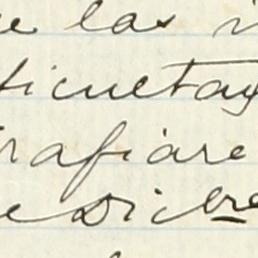 e las i
ticuetay
rafiare
e Dicbre